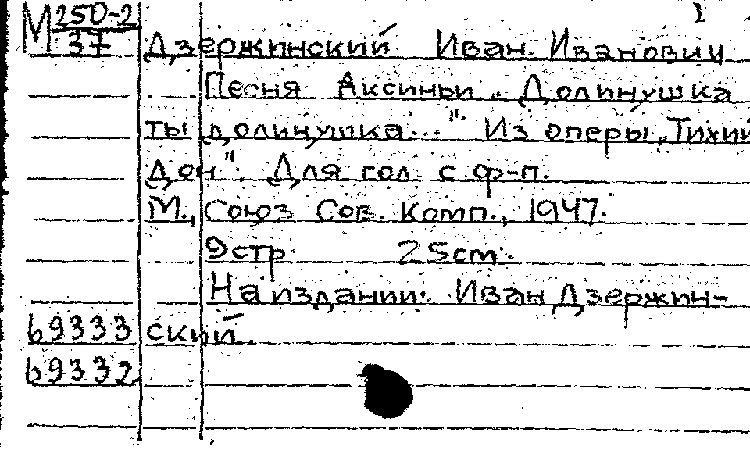 1
М 250-2
37
Дзержинский Иван Иванович
Песня Аксиньи „Долинушка
ты долинушка..." Из оперы „Тихий
Дон". Для гол. с ф-п.
М., Союз Сов. Комп., 1947.
9стр. 25см.
На издании: Иван Дзержин-
69333 ский.
69332